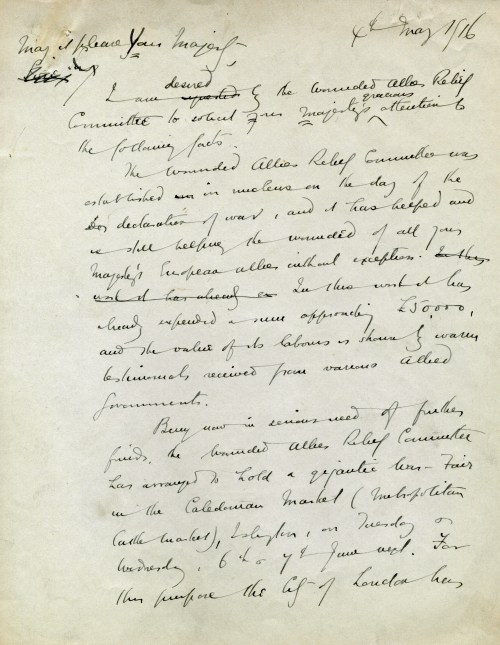 4th May 1916
May it please Your Majesty
I am desired by the Wounded Allies Relief
Committee to solicit your Majesty's gracious attention to
the following facts.
The Wounded Allies Relief Committee was
established in nucleus on the day of the
declaration of war, and it has helped and
is still helping the wounded of all your
Majesty's European allies without exception. In this
work it has already In this work it has
already expended a sum approaching £50,000,
and the value of its labours is shown by warm
testimonials received from various Allied
Governments.
Being now in serious need of further
funds, the Wounded Allies Relief Committee
has arranged to hold a gigantic War-Fair
in the Caledonian Market (Metropolitan
Cattle Market), Islington, on Tuesday &
Wednesday, 6th & 7th June next. For
this purpose the City of London has